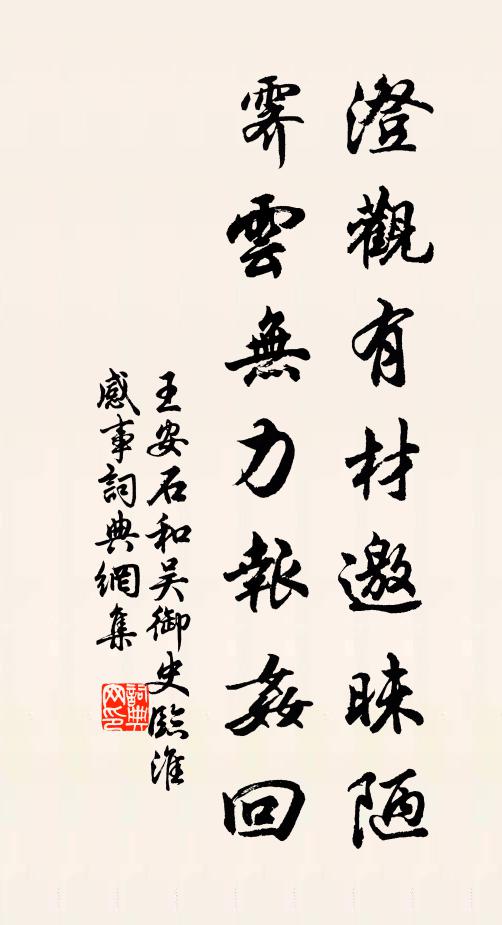 澄觀有材邀昧陋
霽雲無力報姦回
王安石和吴御史臨淮
感事詞典網集
詞典
网印